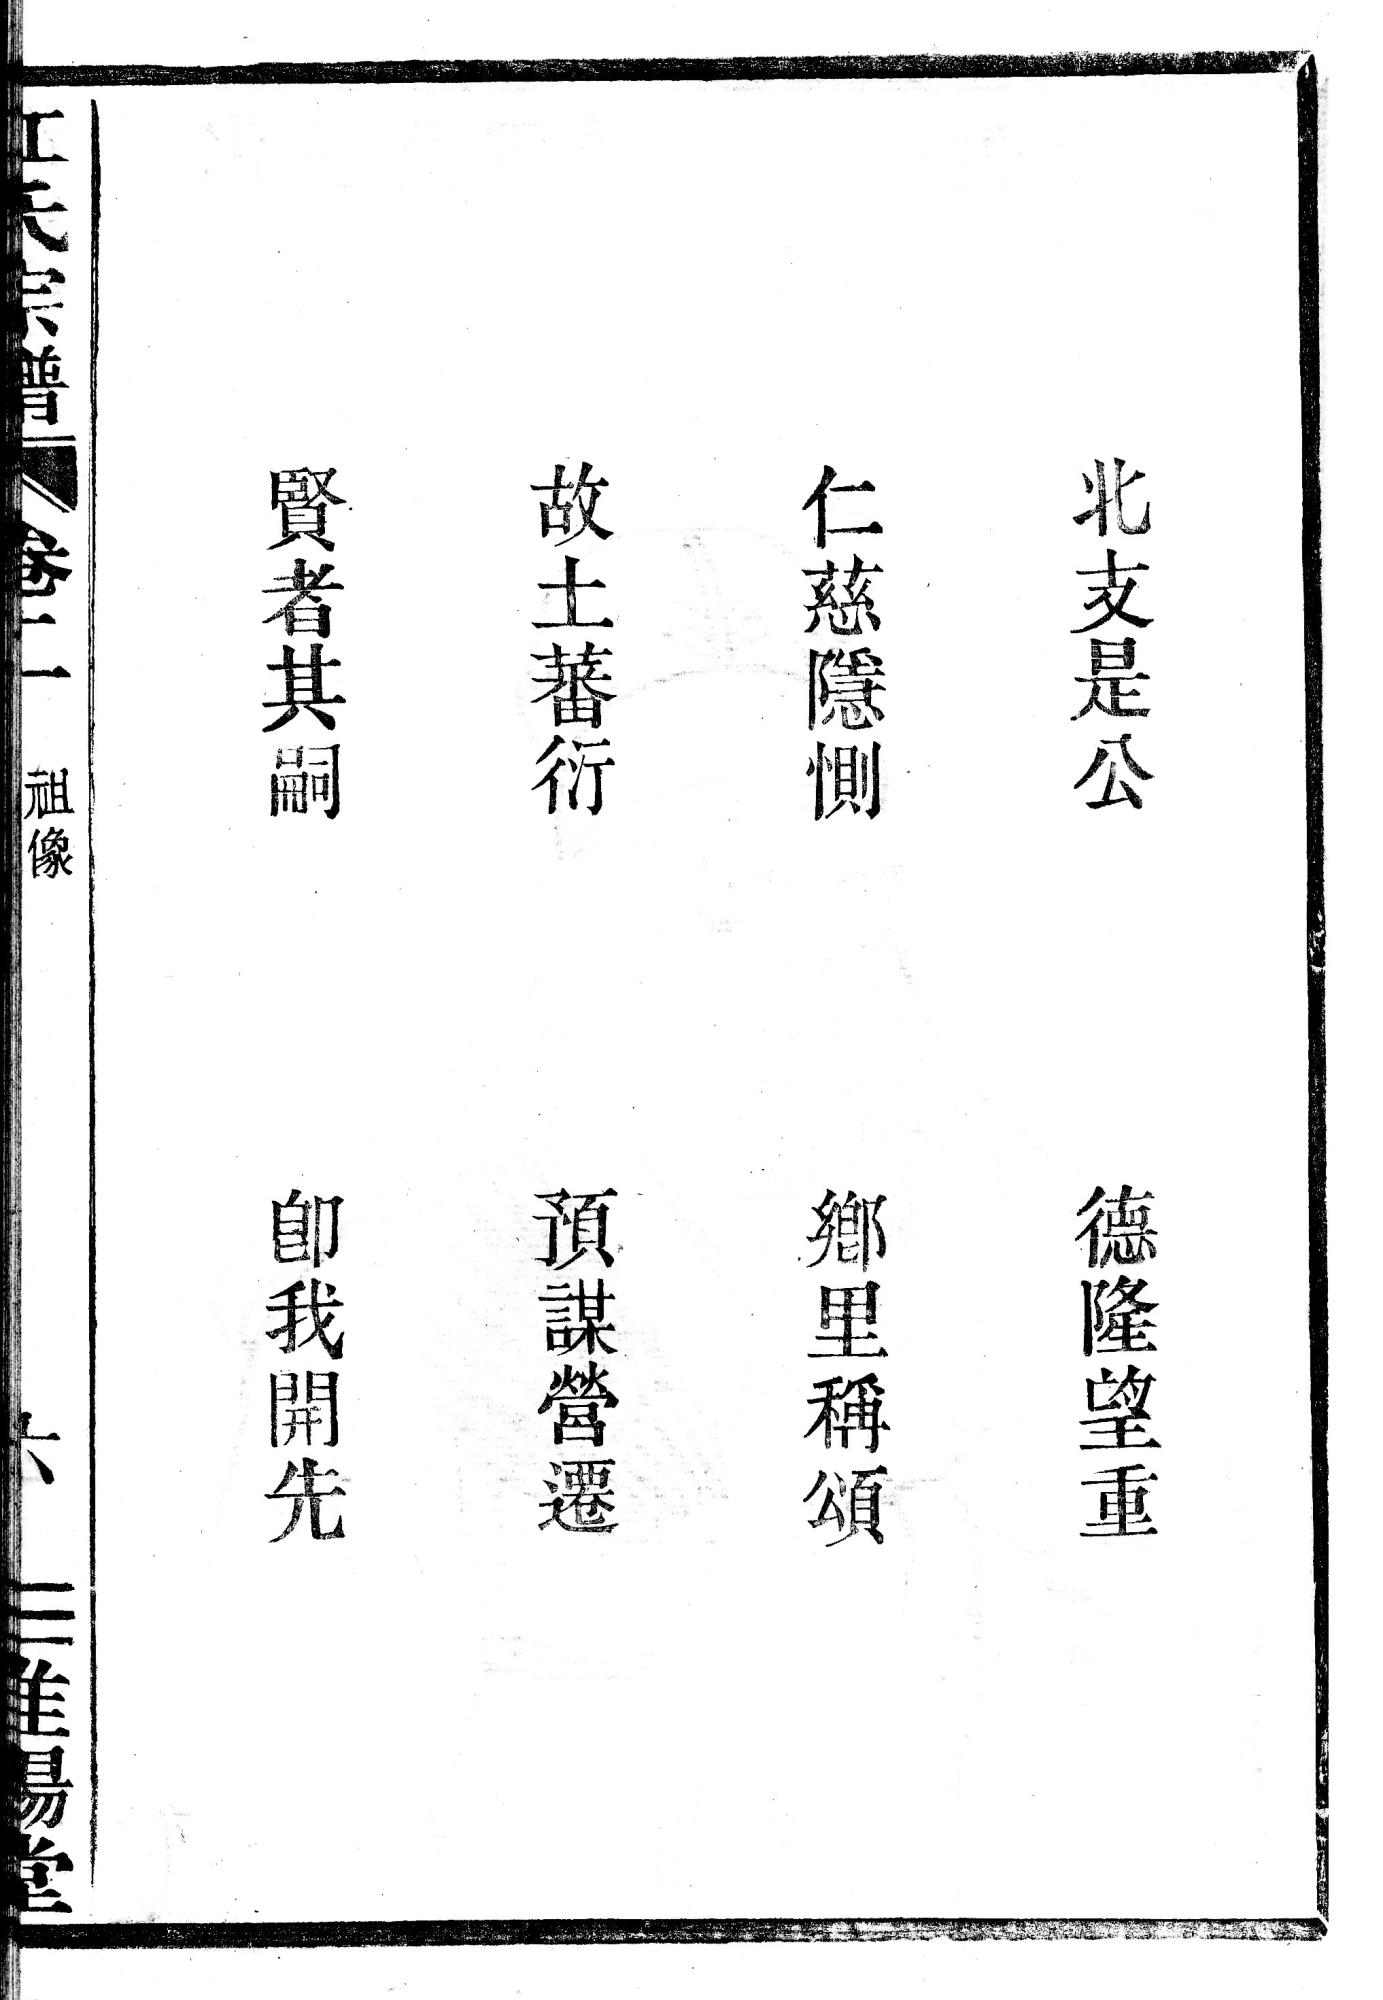 北支是公　德隆望重
仁慈隱惻　鄉里稱頌
故土蕃衍　預謀營遷
賢者其嗣　卽我開先
江氏宗譜　卷二　祖像　六　三淮陽堂